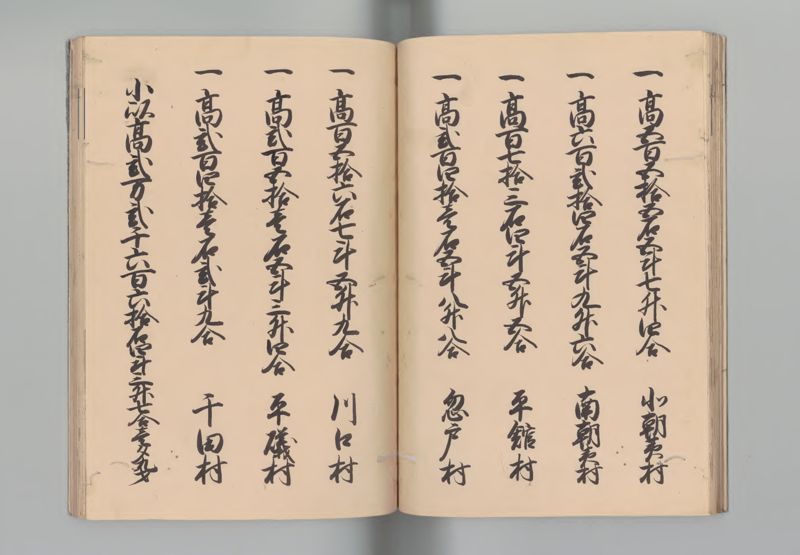 一 高五百五拾五石五斗七升四合 北朝夷村
一 高六百弐拾四石五斗九升六合 南朝夷村
一 高百七拾三石四斗五升五合 平舘村
一 高弐百四拾壱石五斗八升八合 忽戸村
一 高百五拾六石七斗五升九合 川口村
一 高弐百五拾壱石五斗三升四合 平礒村
一 高弐百四拾壱石弐斗九合 千田村
小以高弐万弐千六百六拾石四斗三升七合壱夕